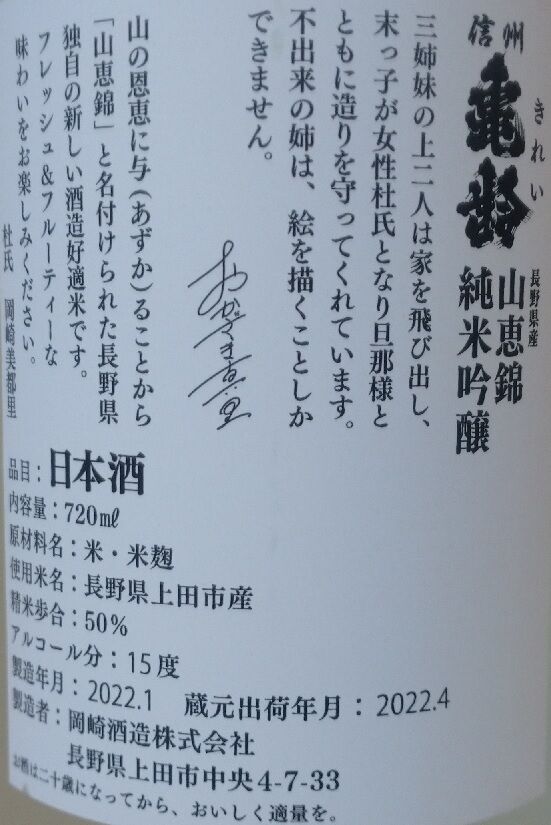 信州
亀齢
きれい
長野県産
山恵錦
純米吟醸
三姉妹の上二人は家を飛び出し、
末っ子が女性杜氏となり旦那様と
ともに造りを守ってくれています。
不出来の姉は、絵を描くことしか
できません。
おかざき真里
山の恩恵に与(あずか)ることから
「山恵錦」と名付けられた長野県
独自の新しい酒造好適米です。
フレッシュ&フルーティーな
味わいをお楽しみください。
杜氏 岡崎美都里
品目：日本酒
内容量：720㎖
原材料名：米・米麹
使用米名：長野県上田市産
精米歩合：50%
アルコール分：15度
製造年月：2022.1 蔵元出荷年月：2022.4
製造者：岡崎酒造株式会社
長野県上田市中央4-7-33
お酒は二十歳になってから、おいしく適量を。